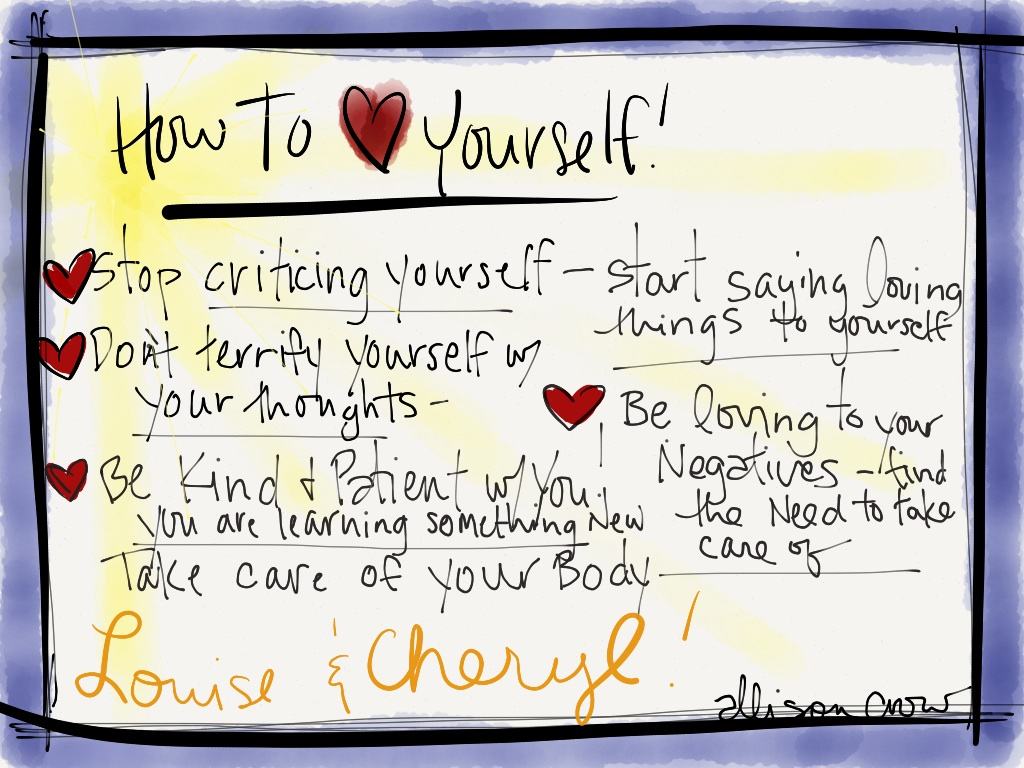 How To ❤ Yourself!
Stop criticing yourself - start saying loving
things to yourself
Don't terrify yourself w/
your thoughts -
Be Kind & Patient w/ You!
you are learning something New
Be loving to your
Negatives - find
the Need to take
care of
Take care of your Body
Louise & Cheryl!
allison crow